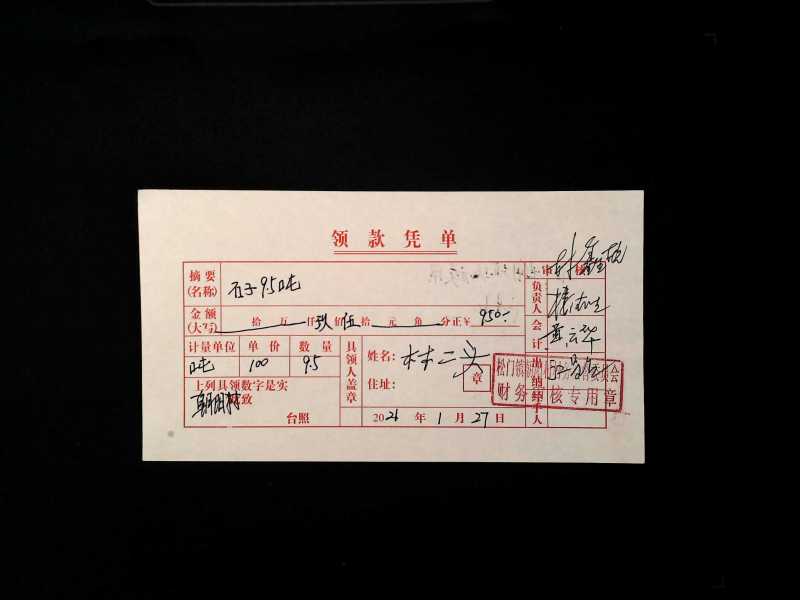 领款凭单
摘要
(名称)
石子9.5吨
审核
负责人
金额
(大写)
拾万仟玖佰伍拾元角分正¥950:-
会计
计量单位 单价 数量
吨 100 9.5
具领人盖章
姓名: 林二头
住址:
章
出纳
经手人
上列具领数字是实
致
朝阳村
台照
2021年1月27日
松门镇
财务审核专用章